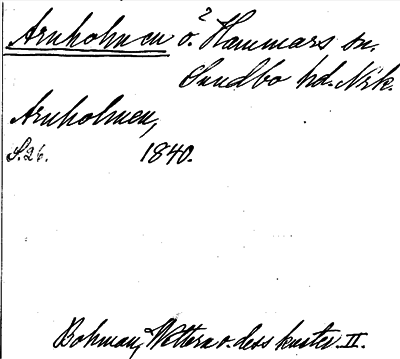 Arnholmen ö. 2 Hammars sn.
Sundbo hd. Nrk.
Arnholmen,
S.26. 1840.
Bohman, Wettern o. dess kuster. II.